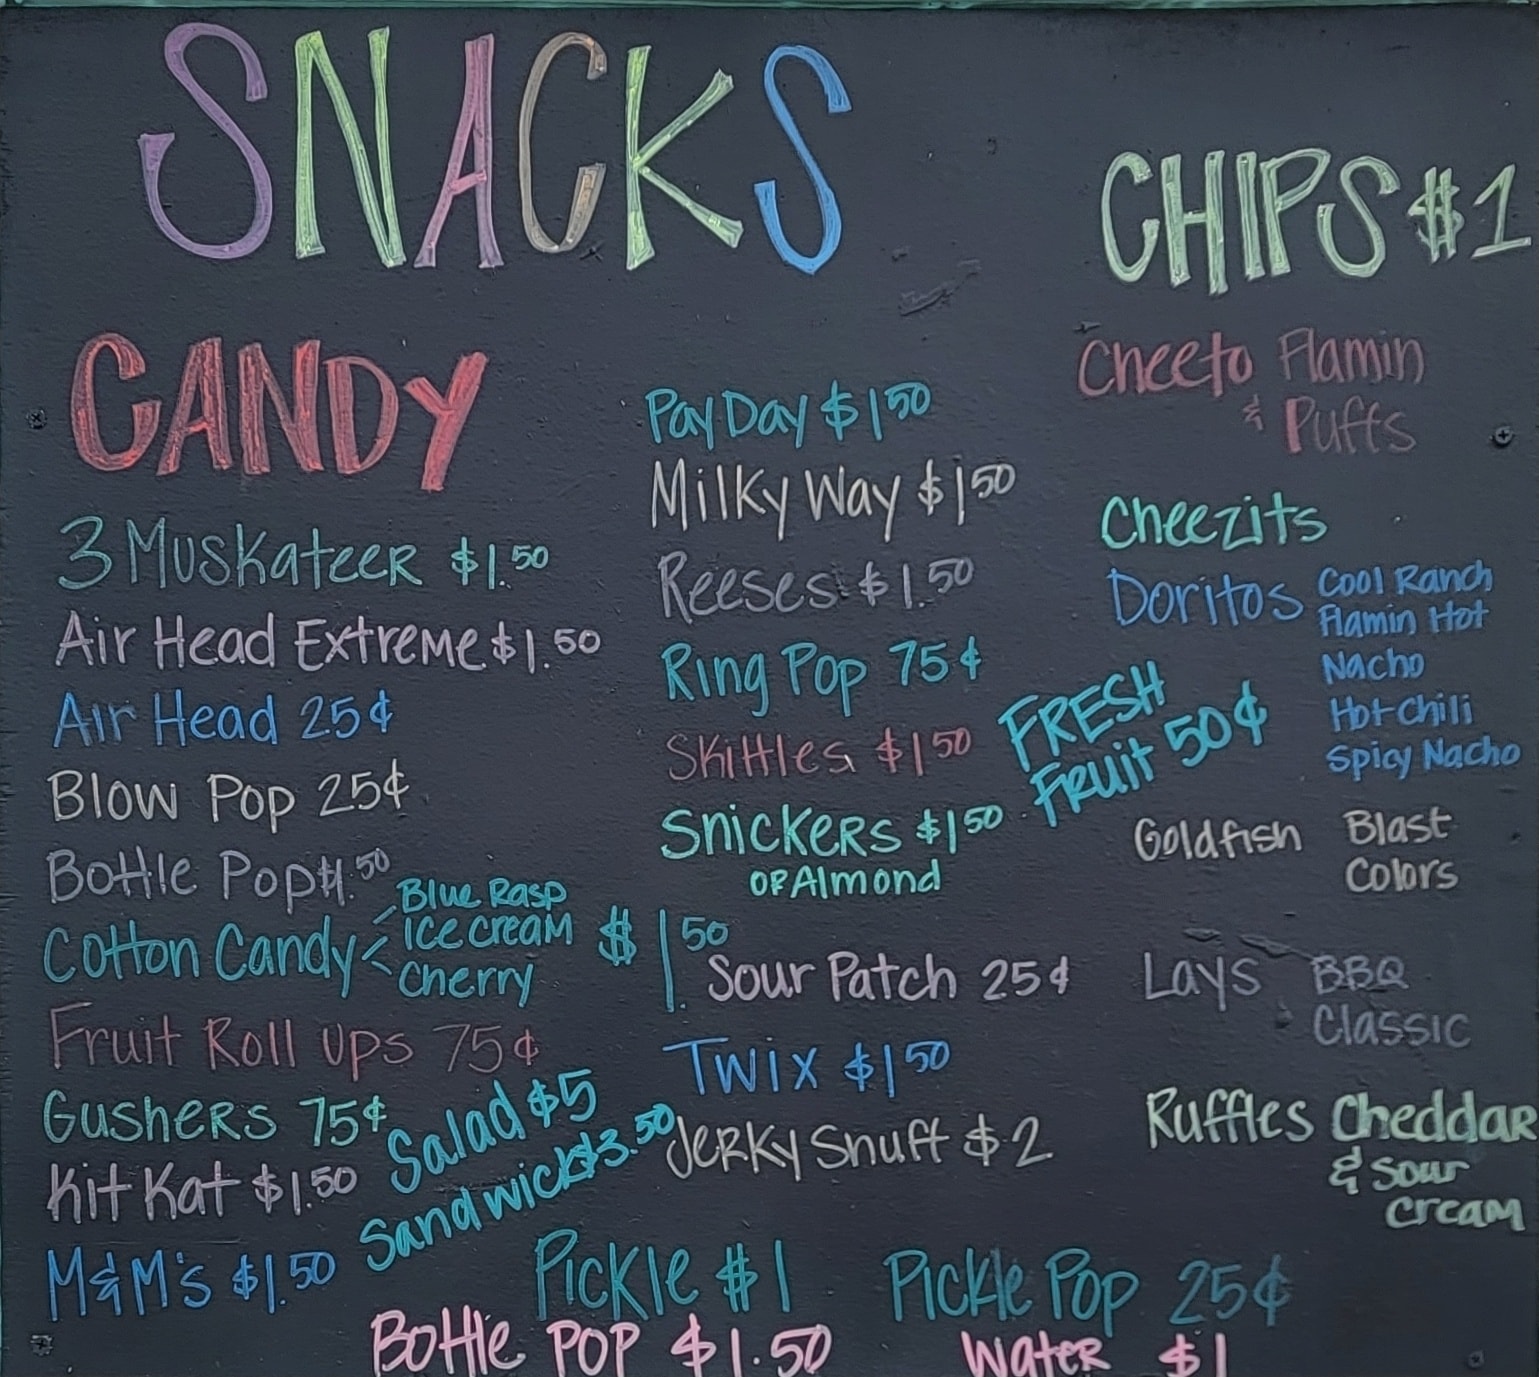 SNACKS
CANDY
3 Muskateer $1.50
Air Head Extreme $1.50
Air Head 25¢
Blow Pop 25¢
Bottle Pop $1.50
Cotton Candy < Blue Rasp
Ice cream
Cherry
$1.50
Fruit Roll Ups 75¢
Gushers 75¢
Kit Kat $1.50
M&M's $1.50
Salad $5
Sandwick $3.50
Pay Day $1 50
Milky Way $1 50
Reeses $1.50
Ring Pop 75¢
Skittles $1 50
Snickers $1 50
or Almond
Sour Patch 25¢
Twix $1 50
Jerky Snuff $2
FRESH
Fruit 50¢
CHIPS $1
Cheeto Flamin
& Puffs
Cheezits
Doritos Cool Ranch
Flamin Hot
Nacho
Hot Chili
Spicy Nacho
Goldfish Blast
Colors
Lays BBQ
Classic
Ruffles Cheddar
& Sour
Cream
Pickle $1
Pickle Pop 25¢
Bottle POP $1.50
Water $1